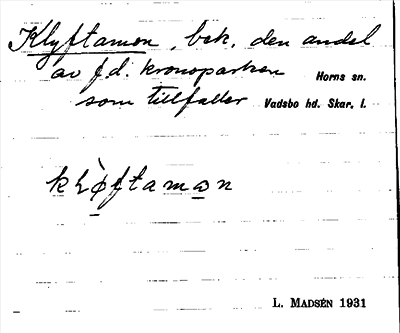 Klyftamon, bek. den andel
av f.d. kronoparken Horns sn.
som tillfaller Vadsbo hd. Skar. l.
L. MADSÉN 1931